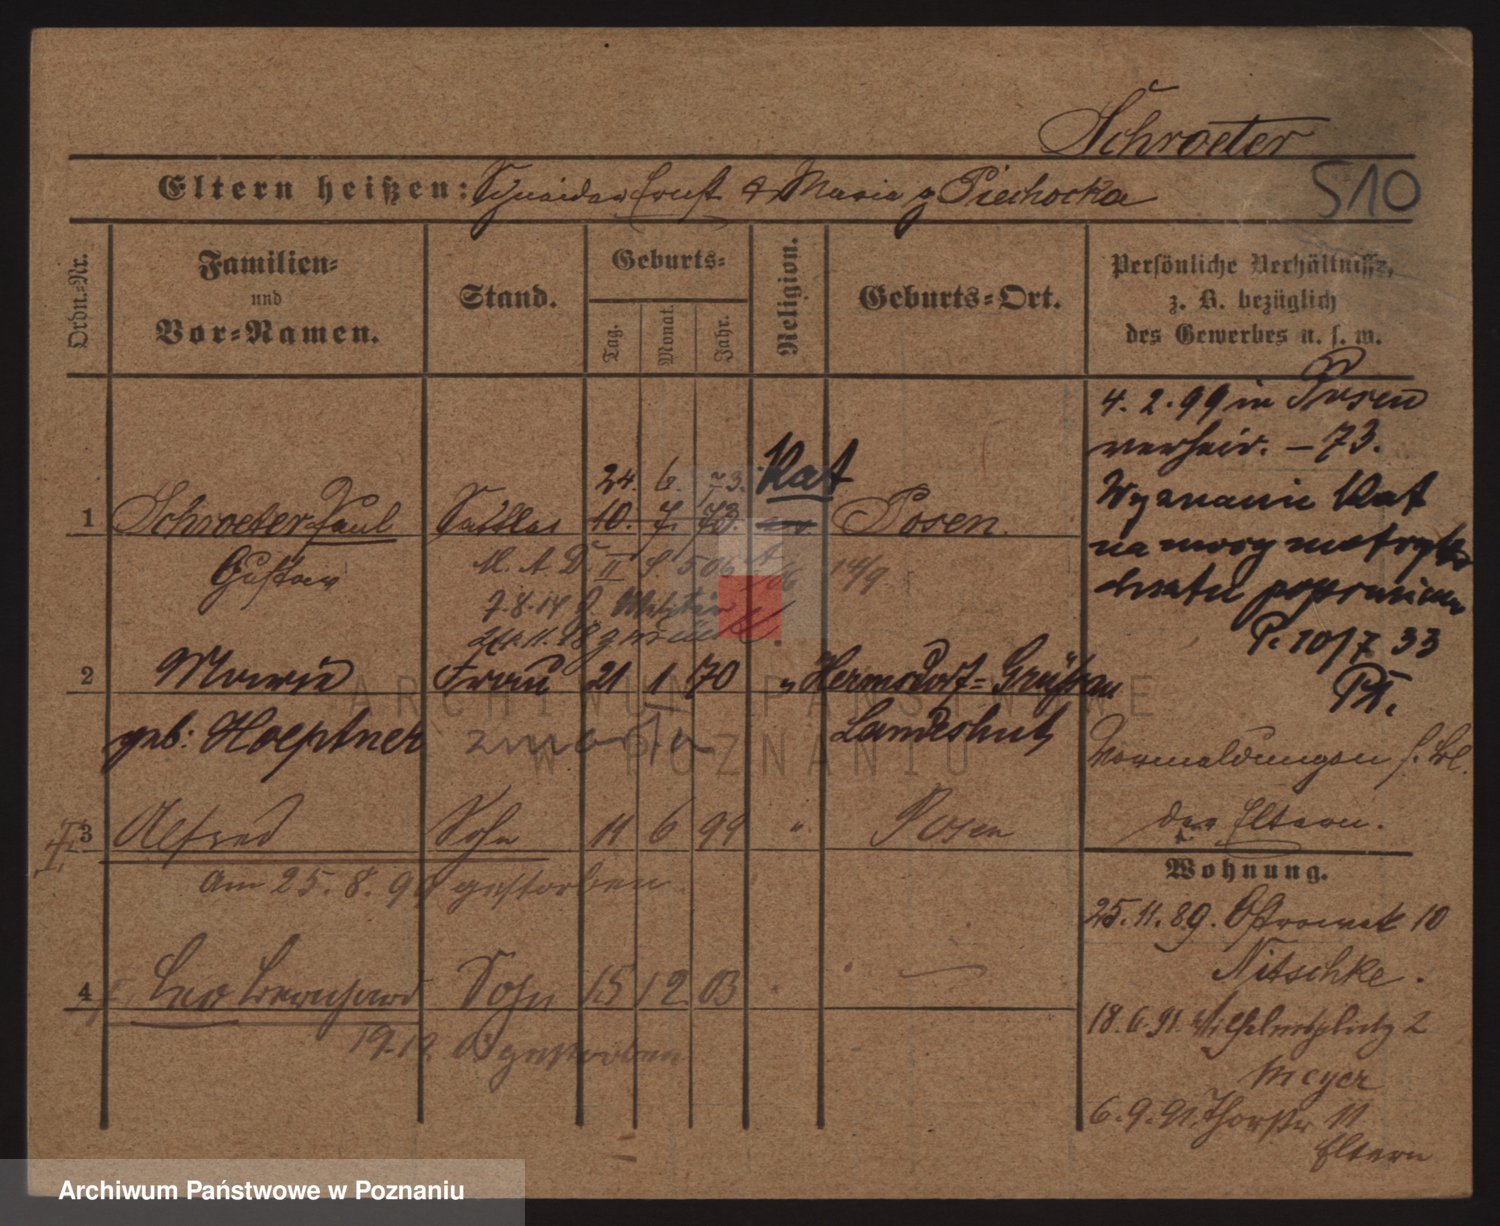 Schroeter
Eltern heißen: Schneider Ernst & Maria g Piechocka
510
Ordn.-Nr.
Familien-
und
Vor-Namen.
Stand.
Geburts-
Tag.
Monat.
Jahr.
Religion.
Geburts-Ort.
Persönliche Verhältnisse,
z. B. bezüglich
des Gewerbes u. s. w.
4. 2. 99 in Posen
verheir. – 73.
Wyznanie Kat
na mocy metryki
chrztu poprawiono
P. 10/7 33
24. 6. 73. Kat
1 Schroeter Paul Sattler 10. 7. 73. ev. Posen.
Gustav
M. A. D. II 14/9
7.8.14
2 Marie Frau 21 1 70 " Hermsdorf-Grüssau
geb: Hoeptner zmarła Landeshut
Vormeldungen s. Bl.
der Eltern.
3 Alfred Sohn 11 6 99 " Posen
am 25. 8. 99 gestorben
4 Leo Bernhard Sohn 15 12 03
19.12 03 gestorben
Wohnung.
25. 11. 89. Ostrowek 10
Nitschke.
18. 6. 91. Wilhelmsplatz 2
Meyer
6. 9. 91. Thorstr 11
Eltern
ARCHIWUM PAŃSTWOWE
W POZNANIU
Archiwum Państwowe w Poznaniu